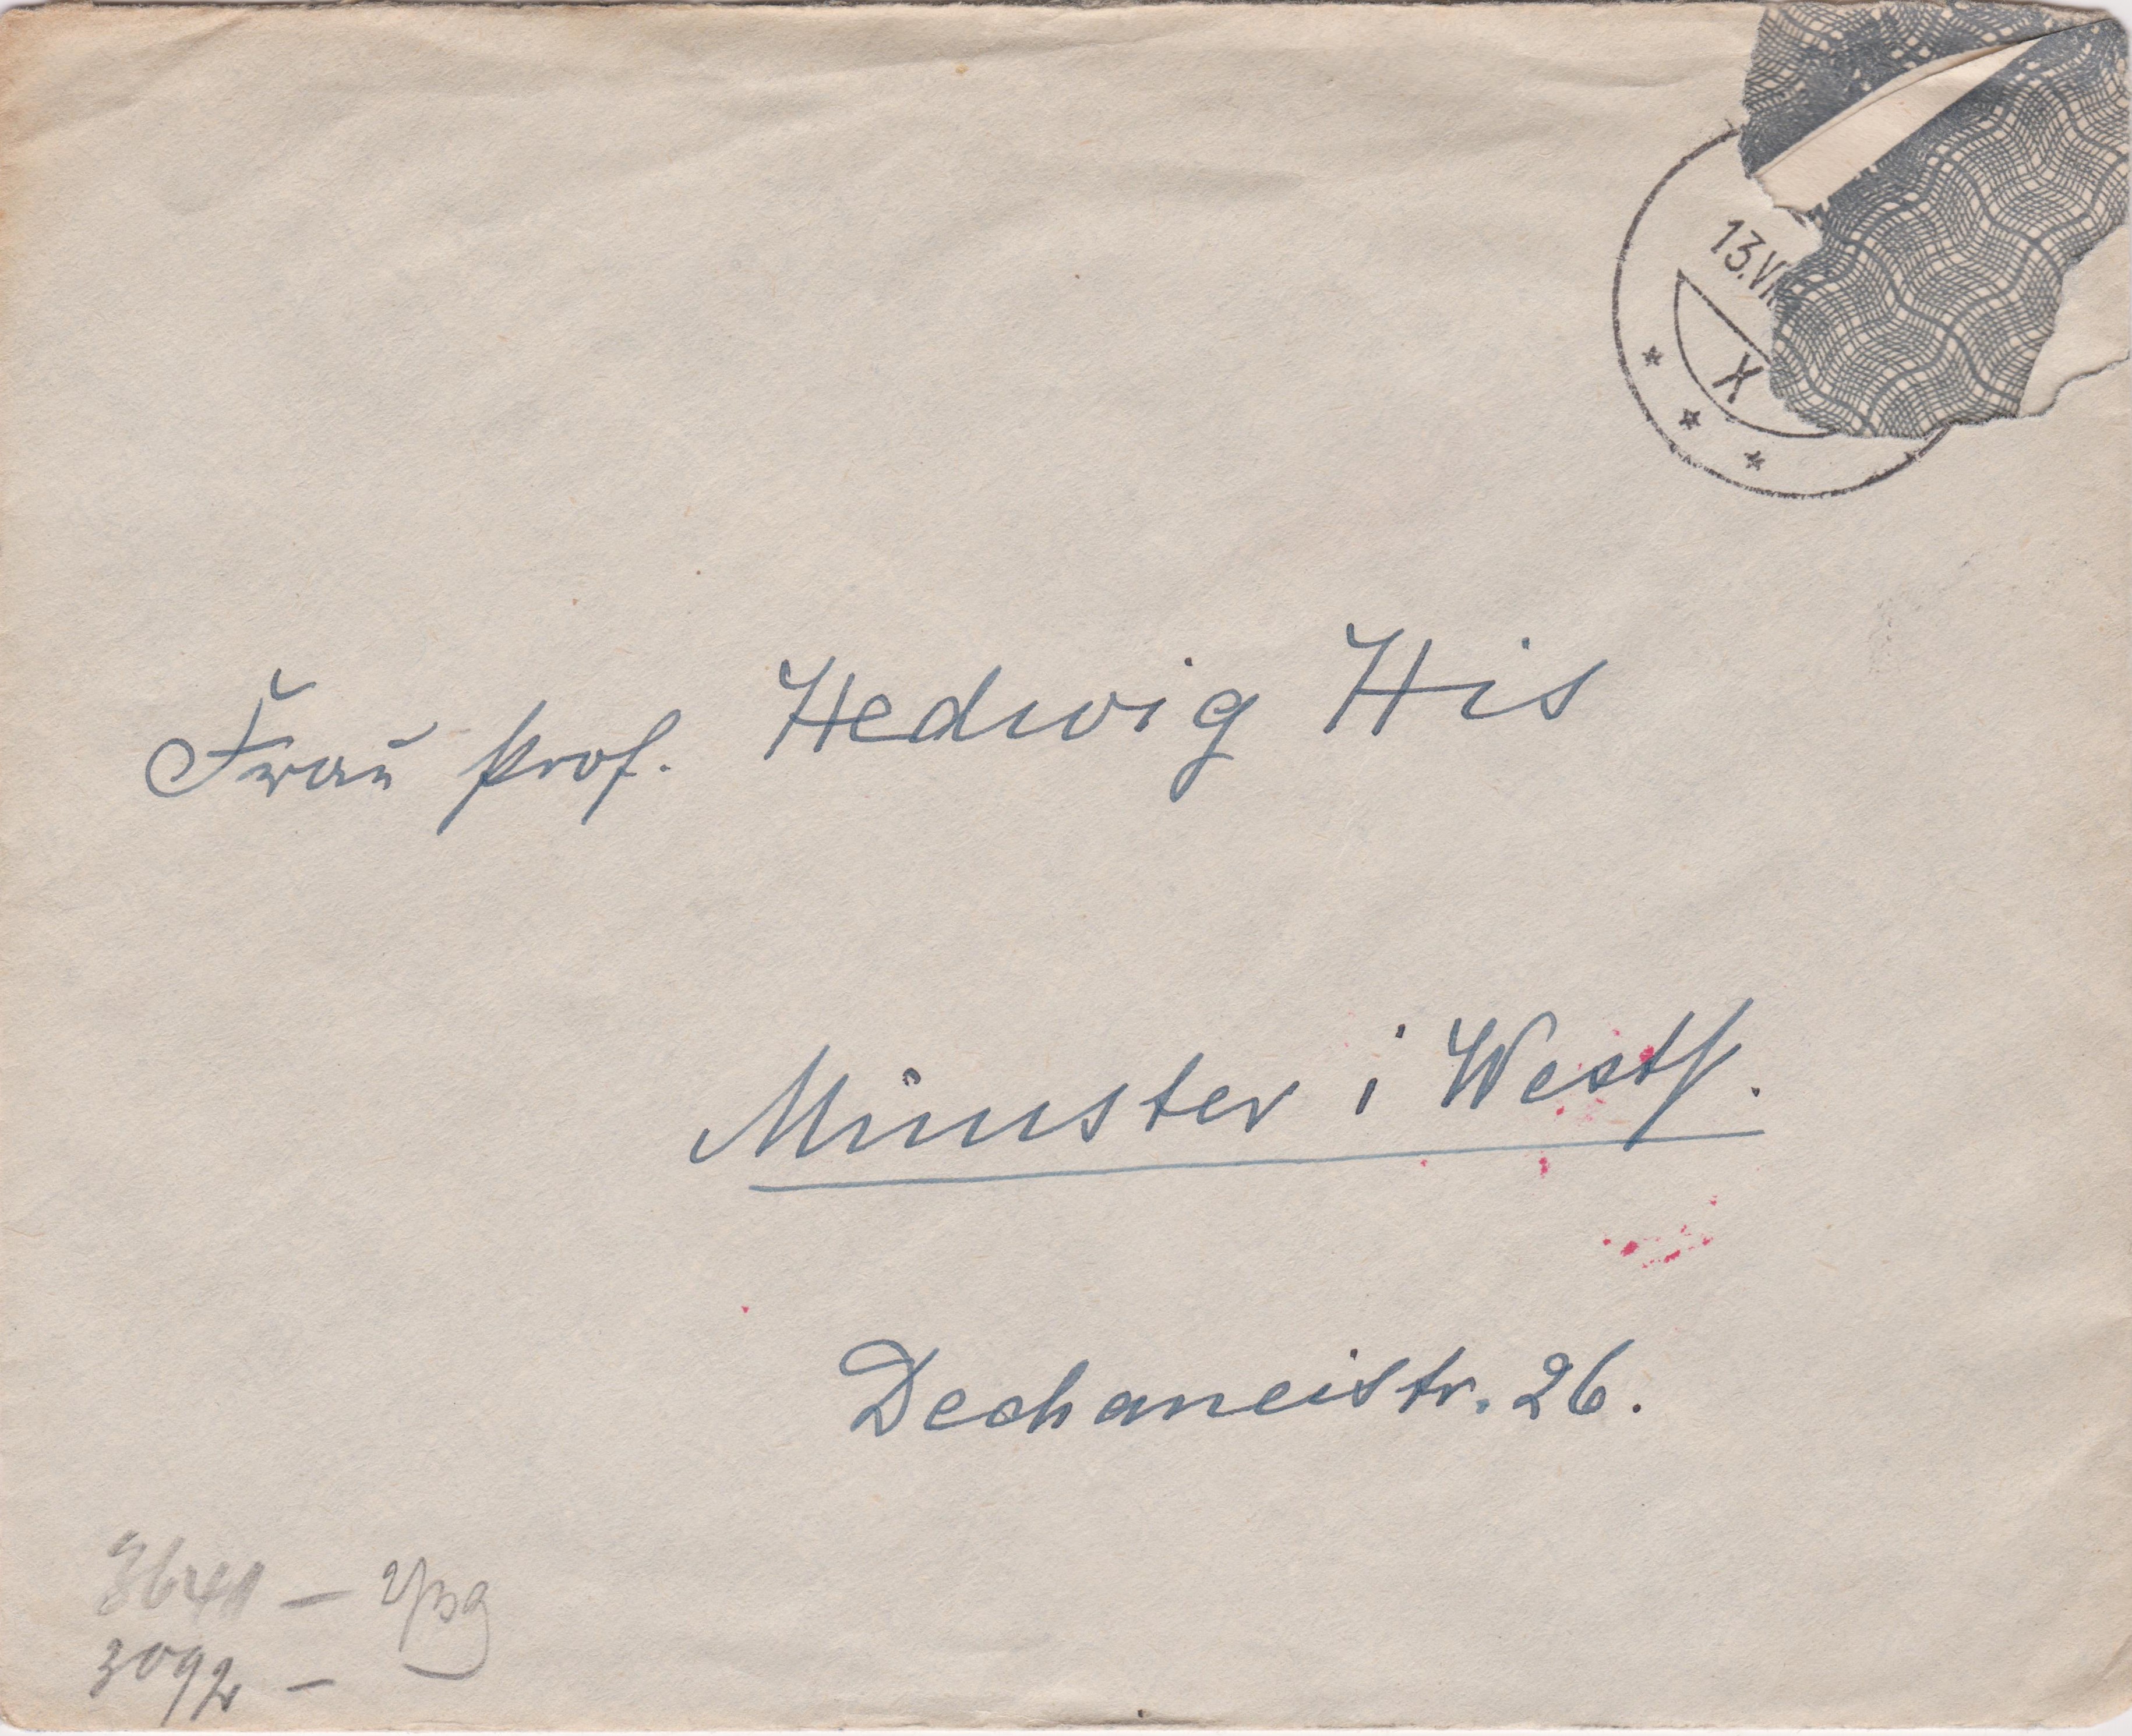 13.VI
X
Frau Prof. Hedwig His
Münster i Westf.
Dechaneistr. 26.
3641 –
3092 –